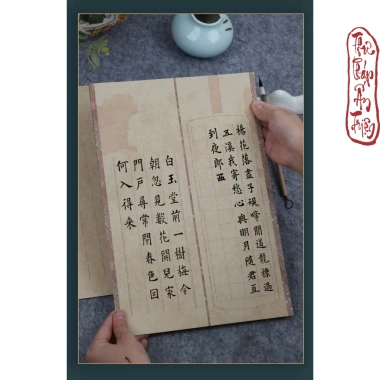 楊花落盡子規啼聞道龍標過
五溪我寄愁心與明月隨君直
到夜郎西
白玉堂前一樹梅今
朝忽見數花開兒家
門戶尋常閉春色因
何入得來
Thư
Pháp